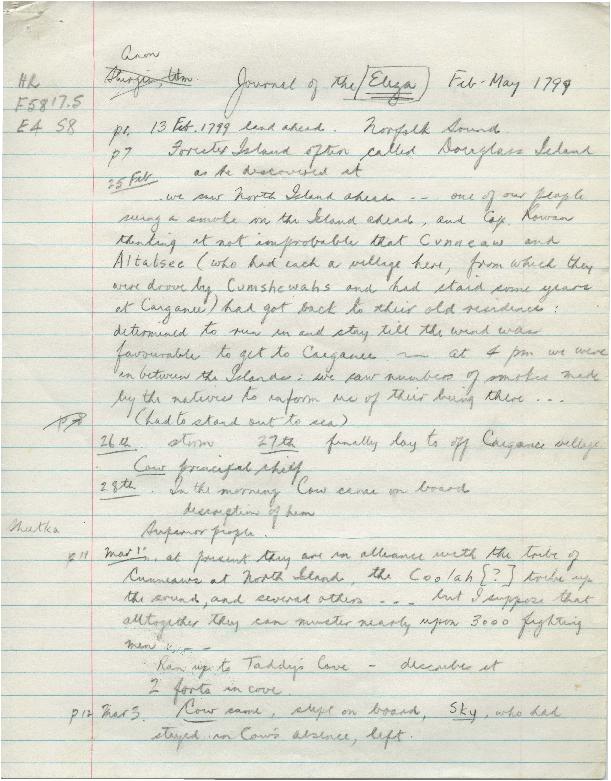 Anon
Sturgis, Wm. Journal of the (Eliza) Feb-May 1799
HR
F5817.5
E4 S8
p1. 13 Feb. 1799 land ahead. Norfolk Sound
p7 Forester Island often called Douglass Island
as he discovered it
25 Feb
we saw North Island ahead -- one of our people
seeing a smoke on the Island ahead, and Cap. Rowan
thinking it not improbable that Cunneaw and
Altatsee (who had each a village here, from which they
were drove by Cumshewahs and had staid some years
at Caiganee) had got back to their old residence:
determined to run in and stay till the wind was
favourable to get to Caiganee -- at 4 pm we were
in between the Islands: we saw numbers of smokes made
by the natives to inform us of their being there ...
(had to stand out to sea)
26th storm 27th finally day to off Caiganee village
Cow principal chief
28th. In the morning Cow came on board
description of him
Superior people.
p11 Mar 1st. at present they are in alliance with the tribe of
Cunneaws at North Island, the Coolah [?] tribe up
the sound, and several others ... but I suppose that
alltogether they can muster nearly upon 3000 fighting
men ...
Ran up to Taddy's Cove - describes it
2 forts in cove.
p12 Mar 3. Cow came, slept on board, Sky, who had
stayed in Cow's absence, left.